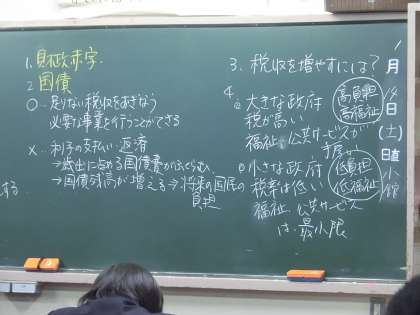 1. 財政赤字
2 国債
○ 足りない税収をおぎなう
必要な事業を行うことができる
× 利子の支払い・返済
→歳出に占める国債費がふくらむ
→国債残高が増える⇒将来の国民の
負担
する
3. 税収を増やすには?
4.
大きな政府
税が高い
福祉・公共サービスが
手厚い
高負担
高福祉
小さな政府
税率は低い
福祉 公共サービス
は 最小限
低負担
低福祉
1
月
日
(土)
日直
小